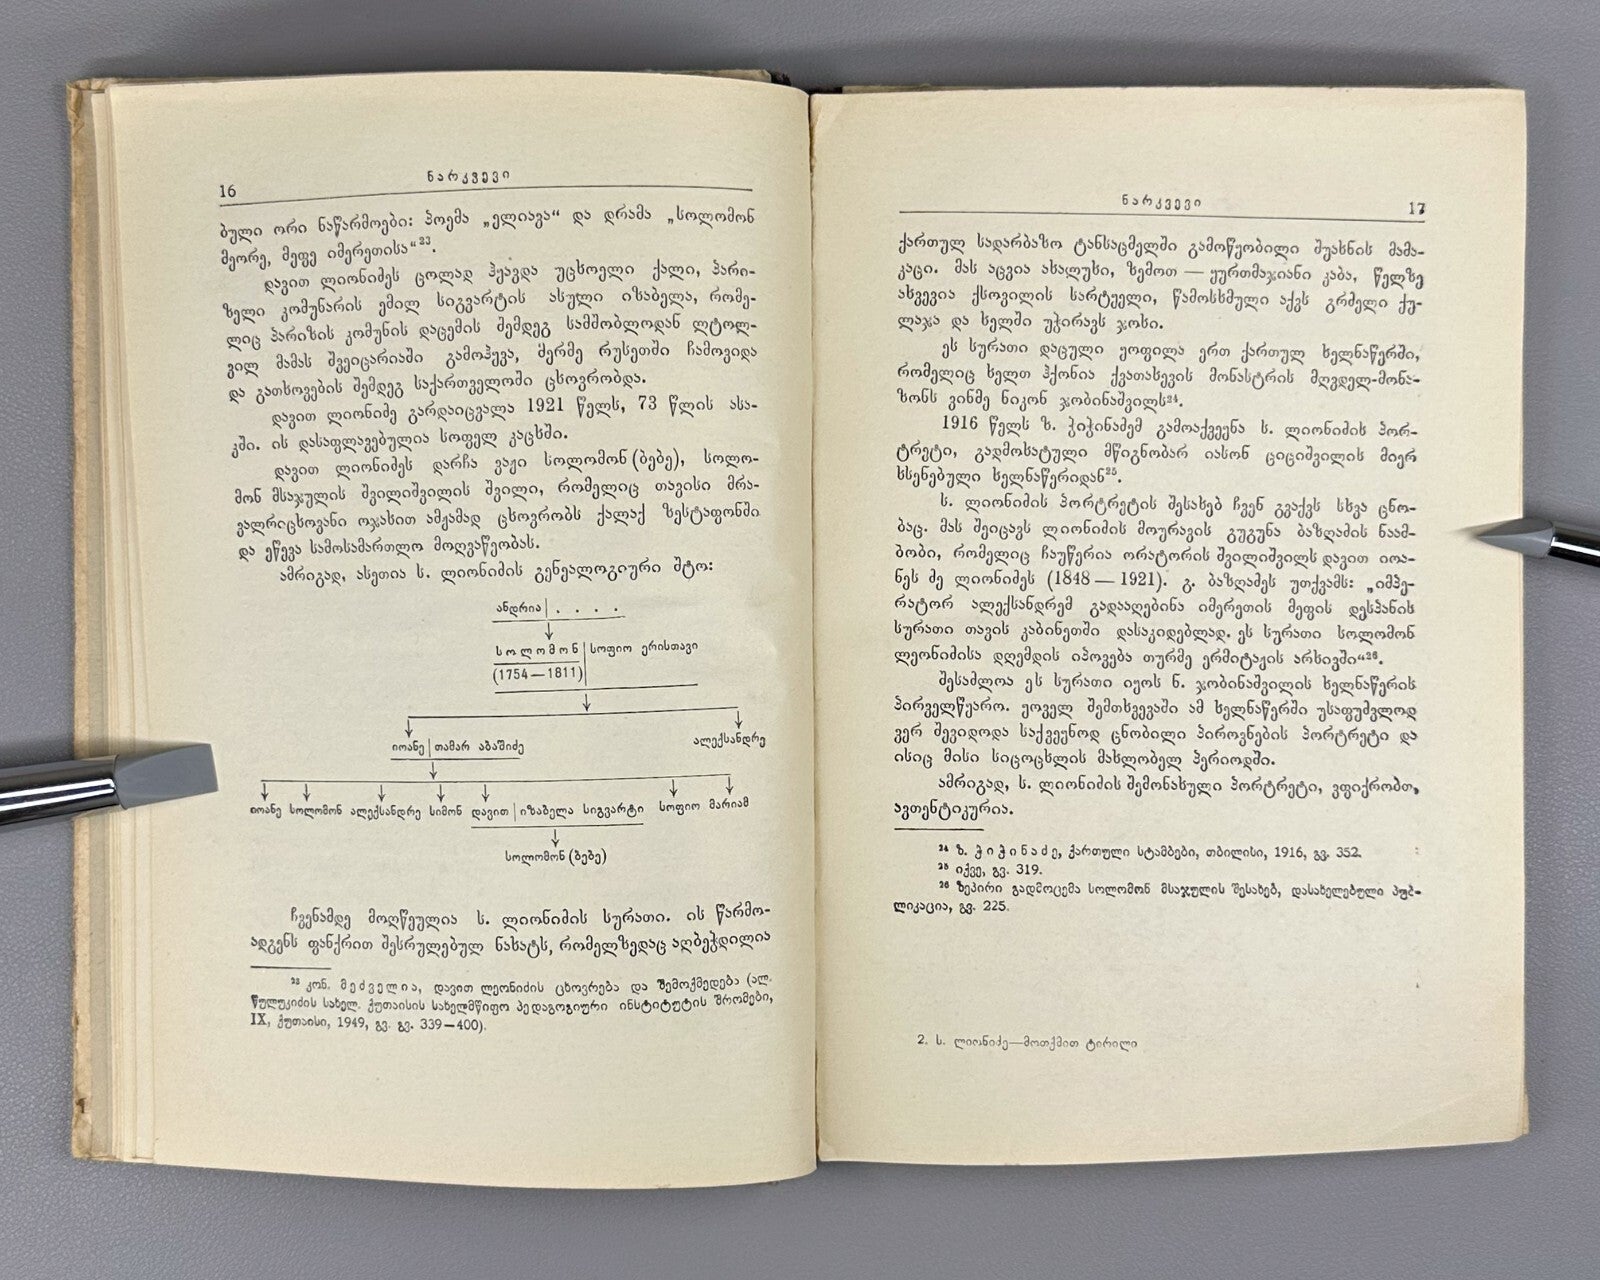 16
ნარკვევი
ბული ორი ნაწარმოები: პოემა „ელიავა“ და დრამა „სოლომონ
მეორე, მეფე იმერეთისა“²³.
დავით ლიონიძეს ცოლად ჰყავდა უცხოელი ქალი, პარი-
ზელი კომუნარის ემილ სიგვარტის ასული იზაბელა, რომე-
ლიც პარიზის კომუნის დაცემის შემდეგ სამშობლოდან ლტოლ-
ვილ მამას შვეიცარიაში გამოჰყვა, მერმე რუსეთში ჩამოვიდა
და გათხოვების შემდეგ საქართველოში ცხოვრობდა.
დავით ლიონიძე გარდაიცვალა 1921 წელს, 73 წლის ასა-
კში. ის დასაფლავებულია სოფელ კაცხში.
დავით ლიონიძეს დარჩა ვაჟი სოლომონ (ბებე), სოლო-
მონ მსაჯულის შვილიშვილის შვილი, რომელიც თავისი მრა-
ვალრიცხოვანი ოჯახით ამჟამად ცხოვრობს ქალაქ ზესტაფონში
და ეწევა სამოსამართლო მოღვაწეობას.
ამრიგად, ასეთია ს. ლიონიძის გენეალოგიური შტო:
ანდრია | . . . .
სოლომონ | სოფიო ერისთავი
(1754—1811)
იოანე | თამარ აბაშიძე ალექსანდრე
იოანე სოლომონ ალექსანდრე სიმონ დავით | იზაბელა სიგვარტი სოფიო მარიამ
სოლომონ (ბებე)
ჩვენამდე მოღწეულია ს. ლიონიძის სურათი. ის წარმო-
ადგენს ფანქრით შესრულებულ ნახატს, რომელზედაც აღბეჭდილია
²³ კონ. მეძველია, დავით ლეონიძის ცხოვრება და შემოქმედება (ალ.
წულუკიძის სახელ. ქუთაისის სახელმწიფო პედაგოგიური ინსტიტუტის შრომები,
IX, ქუთაისი, 1949, გვ. გვ. 339—400).
ნარკვევი
17
ქართულ სადარბაზო ტანსაცმელში გამოწყობილი შუახნის მამა-
კაცი. მას აცვია ახალუხი, ზემოთ — ყურთმაჯიანი კაბა, წელზე
ახვევია ქსოვილის სარტყელი, წამოსხმული აქვს გრძელი ქუ-
ლაჯა და ხელში უჭირავს ჯოხი.
ეს სურათი დაცული ყოფილა ერთ ქართულ ხელნაწერში,
რომელიც ხელთ ჰქონია ქვათახევის მონასტრის მღვდელ-მონა-
ზონს ვინმე ნიკონ ჯობინაშვილს²⁴.
1916 წელს ზ. ჭიჭინაძემ გამოაქვეყნა ს. ლიონიძის პორ-
ტრეტი, გადმოხატული მწიგნობარ იასონ ციციშვილის მიერ
ხსენებული ხელნაწერიდან²⁵.
ს. ლიონიძის პორტრეტის შესახებ ჩვენ გვაქვს სხვა ცნო-
ბაც. მას შეიცავს ლიონიძის მოურავის გუგუნა ბაზღაძის ნაამ-
ბობი, რომელიც ჩაუწერია ორატორის შვილიშვილს დავით იოა-
ნეს ძე ლიონიძეს (1848 — 1921). გ. ბაზღაძეს უთქვამს: „იმპე-
რატორ ალექსანდრემ გადააღებინა იმერეთის მეფის დესპანის
სურათი თავის კაბინეთში დასაკიდებლად. ეს სურათი სოლომონ
ლეონიძისა დღემდის იპოვება თურმე ერმიტაჟის არხივში“²⁶.
შესაძლოა ეს სურათი იყოს ნ. ჯობინაშვილის ხელნაწერის
პირველწყარო. ყოველ შემთხვევაში ამ ხელნაწერში უსაფუძვლოდ
ვერ შევიდოდა საქვეყნოდ ცნობილი პიროვნების პორტრეტი და
ისიც მისი სიცოცხლის მახლობელ პერიოდში.
ამრიგად, ს. ლიონიძის შემონახული პორტრეტი, ვფიქრობთ,
ავთენტიკურია.
²⁴ ზ. ჭიჭინაძე, ქართული სტამბები, თბილისი, 1916, გვ. 352.
²⁵ იქვე, გვ. 319.
²⁶ ზეპირი გადმოცემა სოლომონ მსაჯულის შესახებ, დასახელებული პუბ-
ლიკაცია, გვ. 225.
2. ს. ლიონიძე—მოთქმით ტირილი